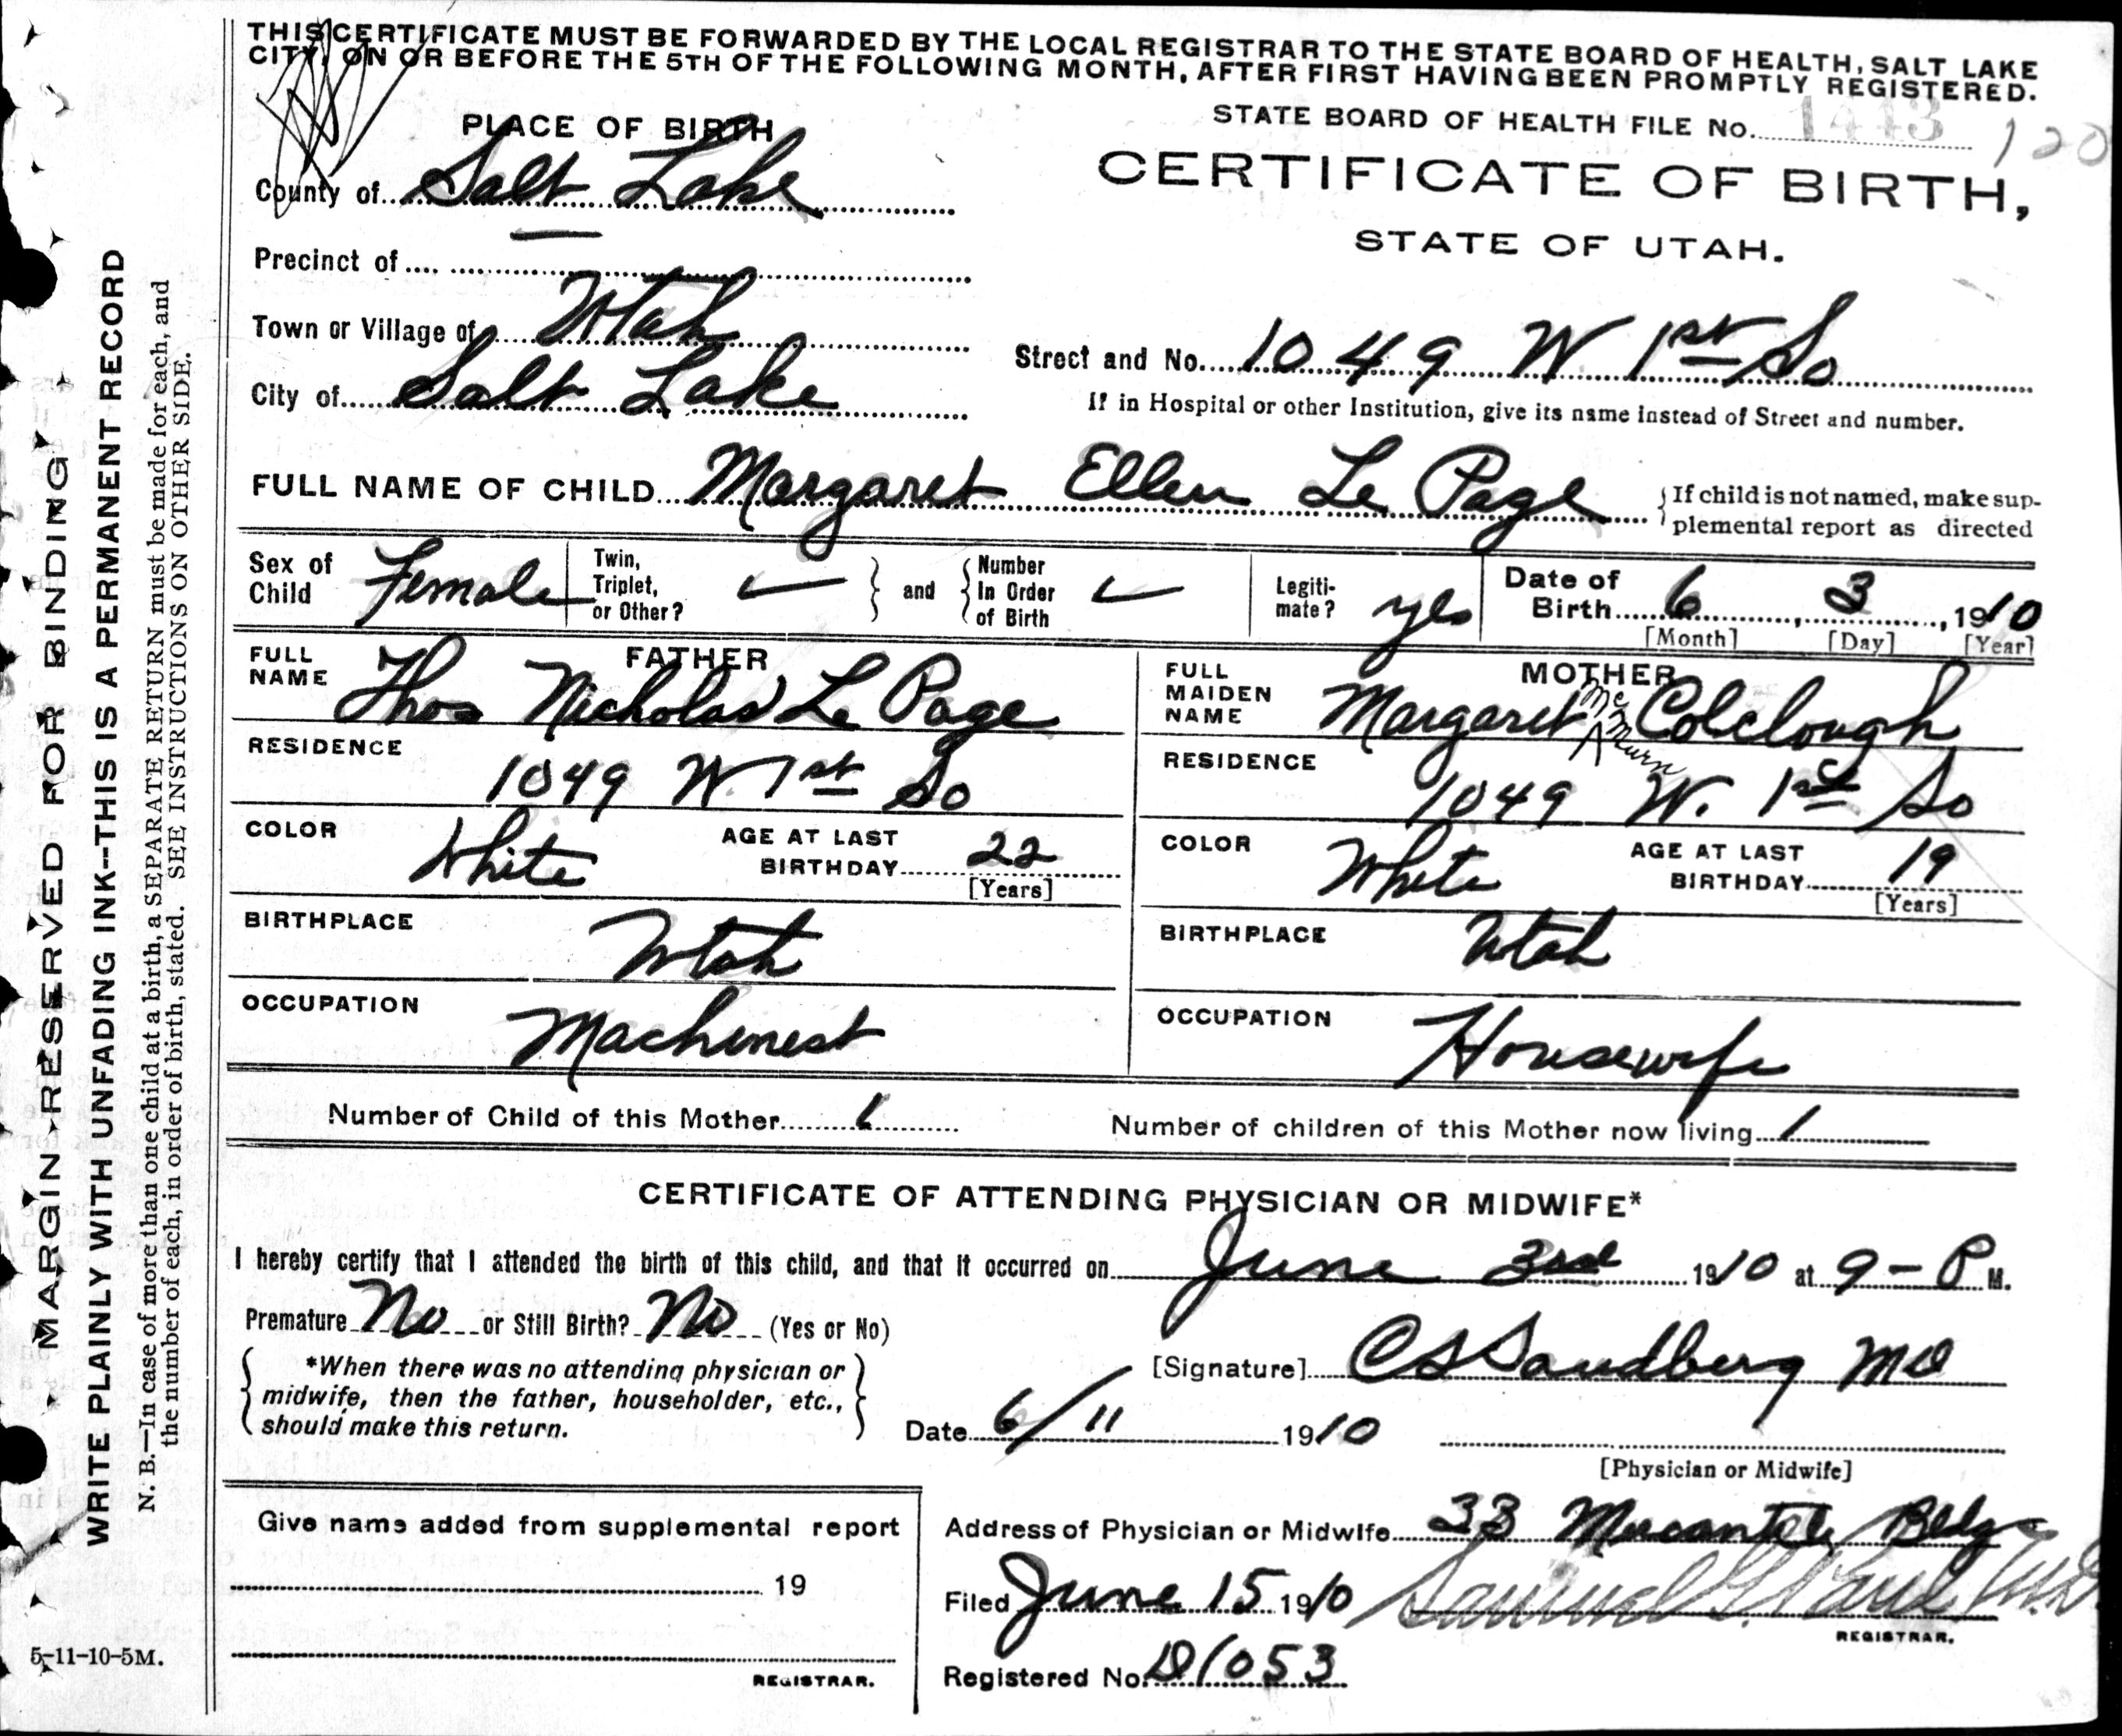 THIS CERTIFICATE MUST BE FORWARDED BY THE LOCAL REGISTRAR TO THE STATE BOARD OF HEALTH, SALT LAKE
CITY, ON OR BEFORE THE 5TH OF THE FOLLOWING MONTH, AFTER FIRST HAVING BEEN PROMPTLY REGISTERED.
STATE BOARD OF HEALTH FILE No. 1443 120
PLACE OF BIRTH
CERTIFICATE OF BIRTH,
STATE OF UTAH.
County of Salt Lake
Precinct of —
Town or Village of Utah
City of Salt Lake
Street and No. 1049 W 1st So
If in Hospital or other Institution, give its name instead of Street and number.
FULL NAME OF CHILD Margaret Ellen Le Page
If child is not named, make sup-
plemental report as directed
Sex of Child Female
Twin, Triplet, or Other? and Number In Order of Birth
Legiti-mate? yes
Date of Birth 6, 3, 1910
[Month] [Day] [Year]
FATHER
FULL NAME Thos Nicholas Le Page
RESIDENCE 1049 W. 1st So
COLOR White AGE AT LAST BIRTHDAY 22
[Years]
BIRTHPLACE Utah
OCCUPATION Machinest
MOTHER
FULL MAIDEN NAME Margaret Mc Murn Colclough
RESIDENCE 1049 W. 1st So
COLOR White AGE AT LAST BIRTHDAY 19
[Years]
BIRTHPLACE Utah
OCCUPATION Housewife
Number of Child of this Mother 1 Number of children of this Mother now living 1
CERTIFICATE OF ATTENDING PHYSICIAN OR MIDWIFE*
I hereby certify that I attended the birth of this child, and that it occurred on June 3rd 1910 at 9 - P M.
Premature No or Still Birth? No (Yes or No)
*When there was no attending physician or
midwife, then the father, householder, etc.,
should make this return.
[Signature] C S Sandberg MD
Date 6/11 1910
[Physician or Midwife]
Give name added from supplemental report
19
REGISTRAR.
Address of Physician or Midwife 33 Mercantile Bldg
Filed June 15 1910 Samuel G. Paul M.D.
REGISTRAR.
Registered No. D1053
MARGIN RESERVED FOR BINDING
WRITE PLAINLY WITH UNFADING INK--THIS IS A PERMANENT RECORD
N. B.—In case of more than one child at a birth, a SEPARATE RETURN must be made for each, and
the number of each, in order of birth, stated. SEE INSTRUCTIONS ON OTHER SIDE.
5-11-10-5M.